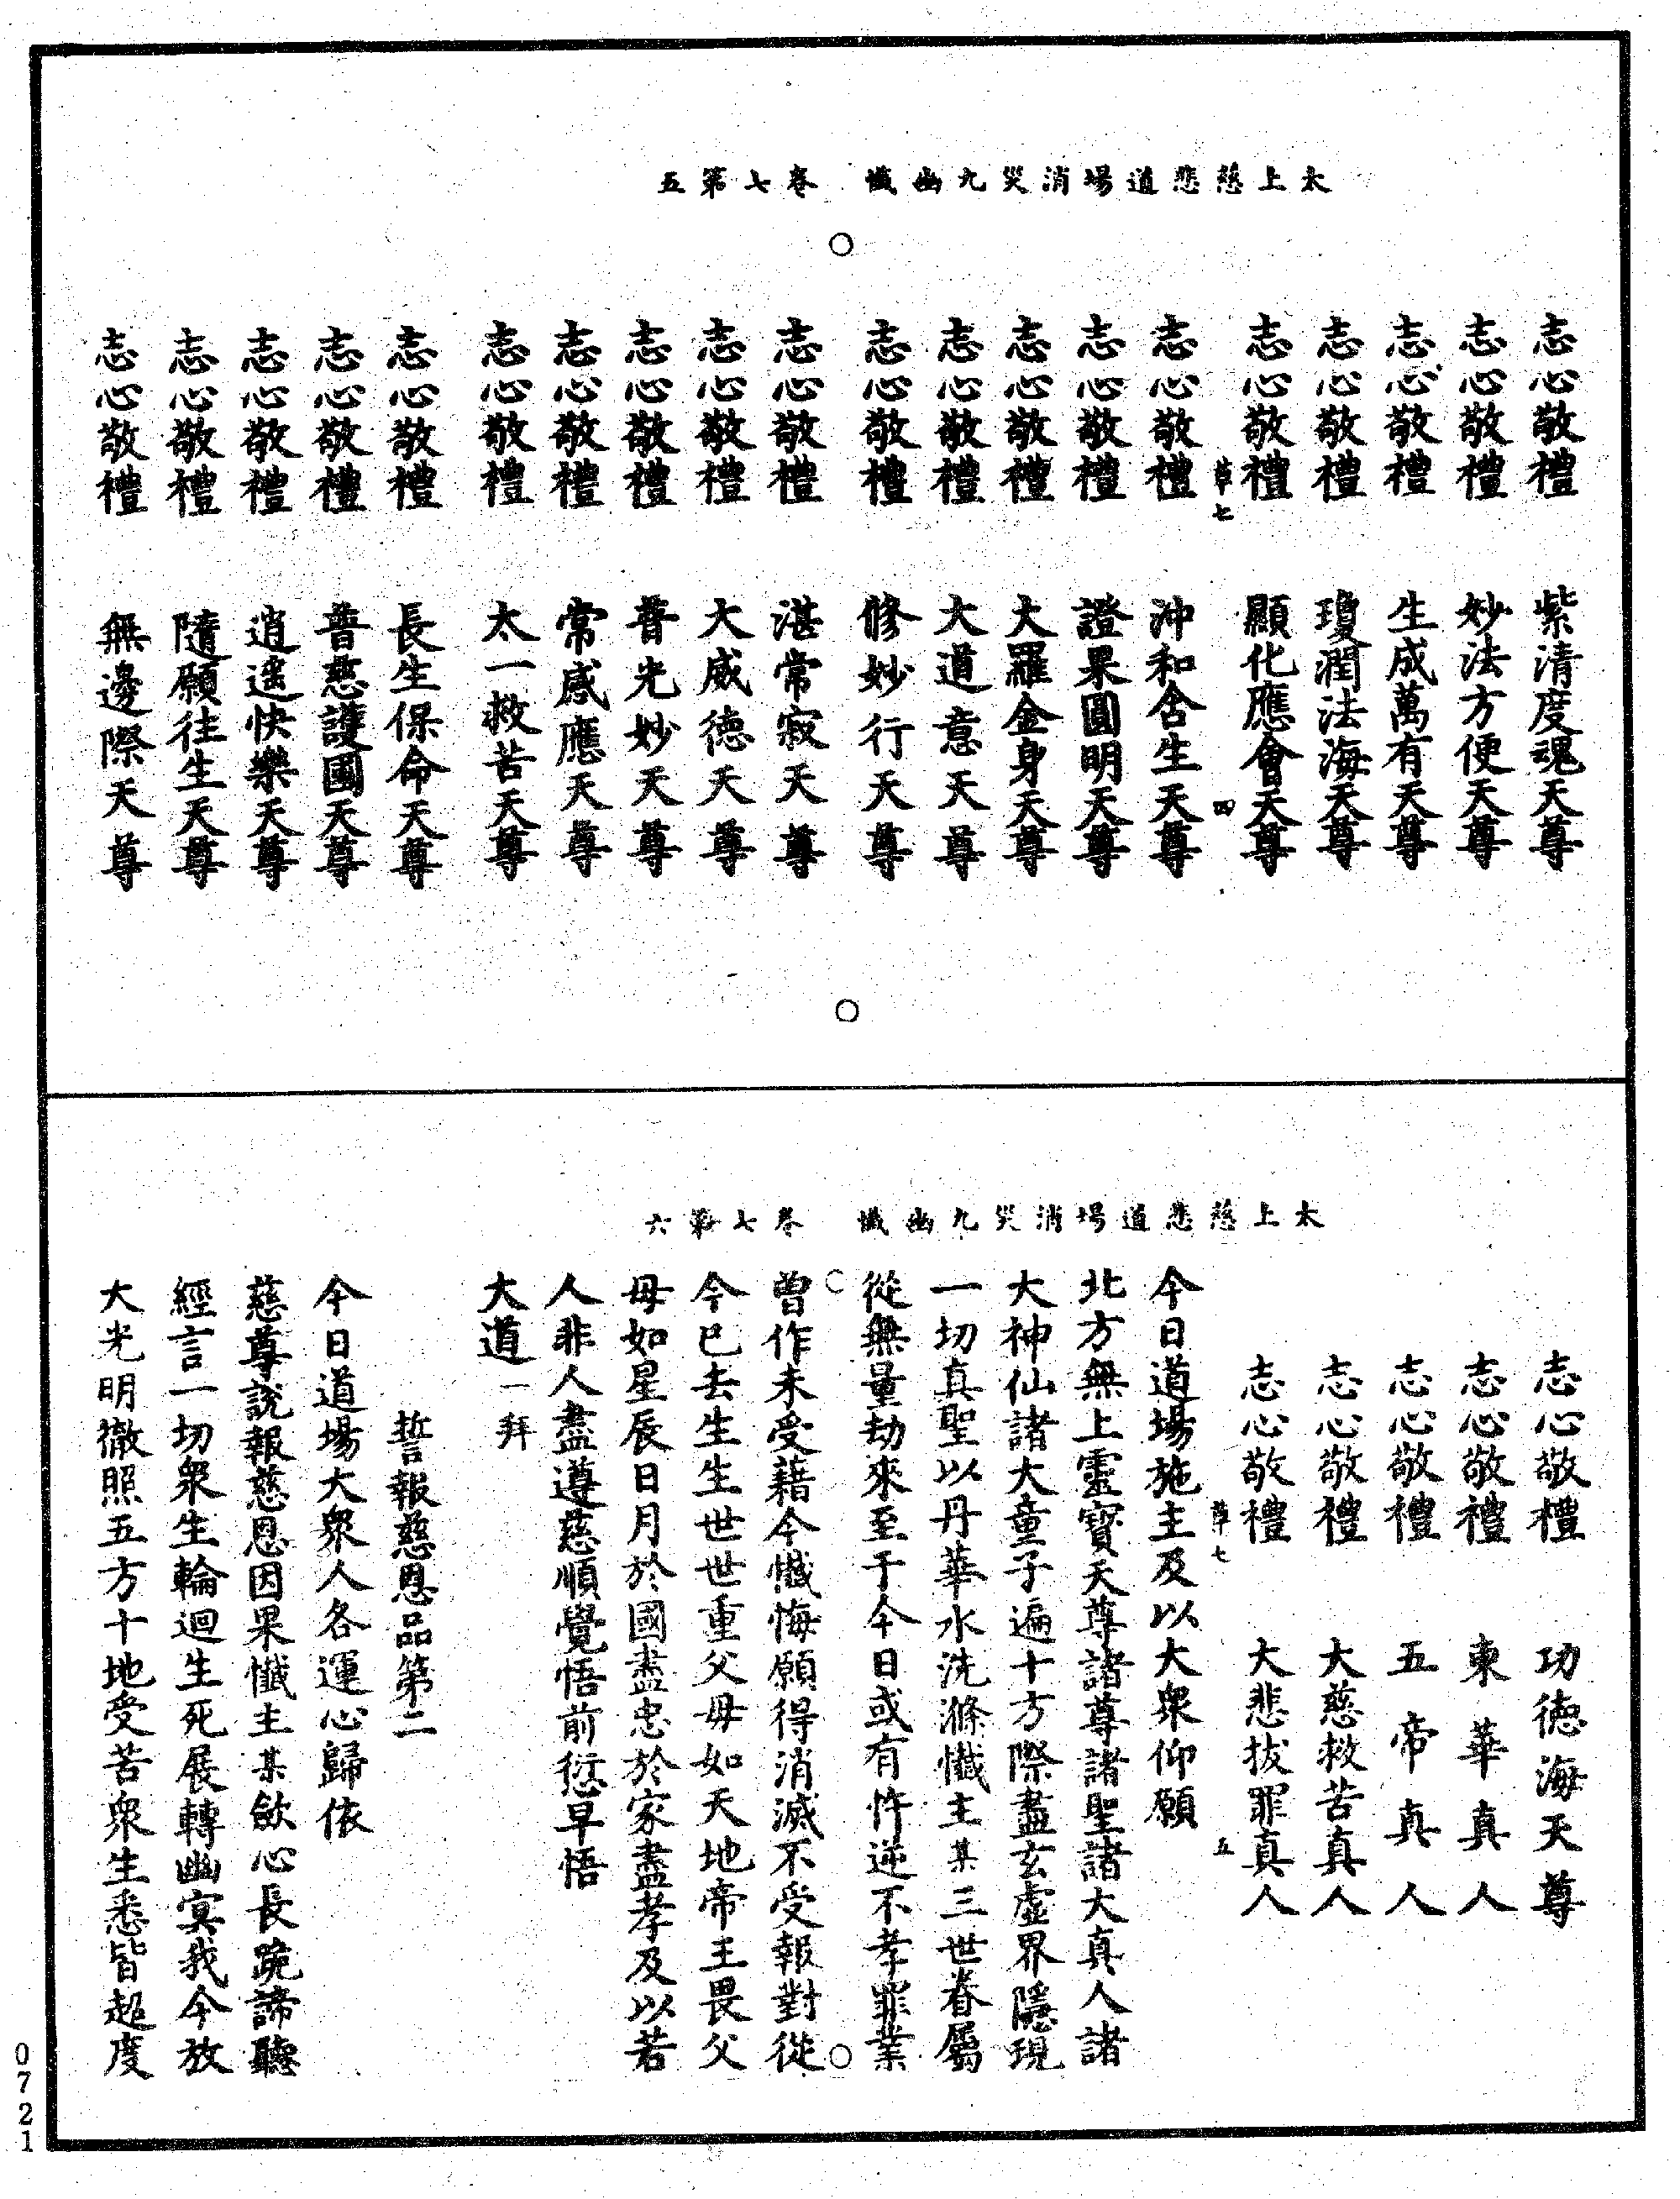 太上慈悲道場消災九幽懺　卷七第五
志心敬禮　紫清度魂天尊
志心敬禮　妙法方便天尊
志心敬禮　生成萬有天尊
志心敬禮　瓊潤法海天尊
志心敬禮　顯化應會天尊
草七　四
志心敬禮　沖和含生天尊
志心敬禮　證果圓明天尊
志心敬禮　大羅金身天尊
志心敬禮　大道意天尊
志心敬禮　修妙行天尊
志心敬禮　湛常寂天尊
志心敬禮　大威德天尊
志心敬禮　普光妙天尊
志心敬禮　常感應天尊
志心敬禮　太一救苦天尊
志心敬禮　長生保命天尊
志心敬禮　普慈護國天尊
志心敬禮　逍遙快樂天尊
志心敬禮　隨願往生天尊
志心敬禮　無邊際天尊
太上慈悲道場消災九幽懺　卷七第六
志心敬禮　功德海天尊
志心敬禮　東華真人
志心敬禮　五帝真人
志心敬禮　大慈救苦真人
志心敬禮　大悲拔罪真人
草七　五
今日道場施主及以大眾仰願
北方無上靈寶天尊諸尊諸聖諸大真人諸
大神仙諸大童子遍十方際盡玄虛界隱現
一切真聖以丹華水洗滌懺主某三世眷屬
從無量劫來至于今日或有忤逆不孝罪業
曾作未受藉今懺悔願得消滅不受報對從
今已去生生世世重父母如天地帝王畏父
母如星辰日月於國盡忠於家盡孝及以若
人非人盡遵慈順覺悟前愆早悟
大道一拜
誓報慈恩品第二
今日道場大眾人各運心歸依
慈尊說報慈恩因果懺主某歛心長跪諦聽
經言一切眾生輪迴生死展轉幽冥我今放
大光明徹照五方十地受苦眾生悉皆超度
0721